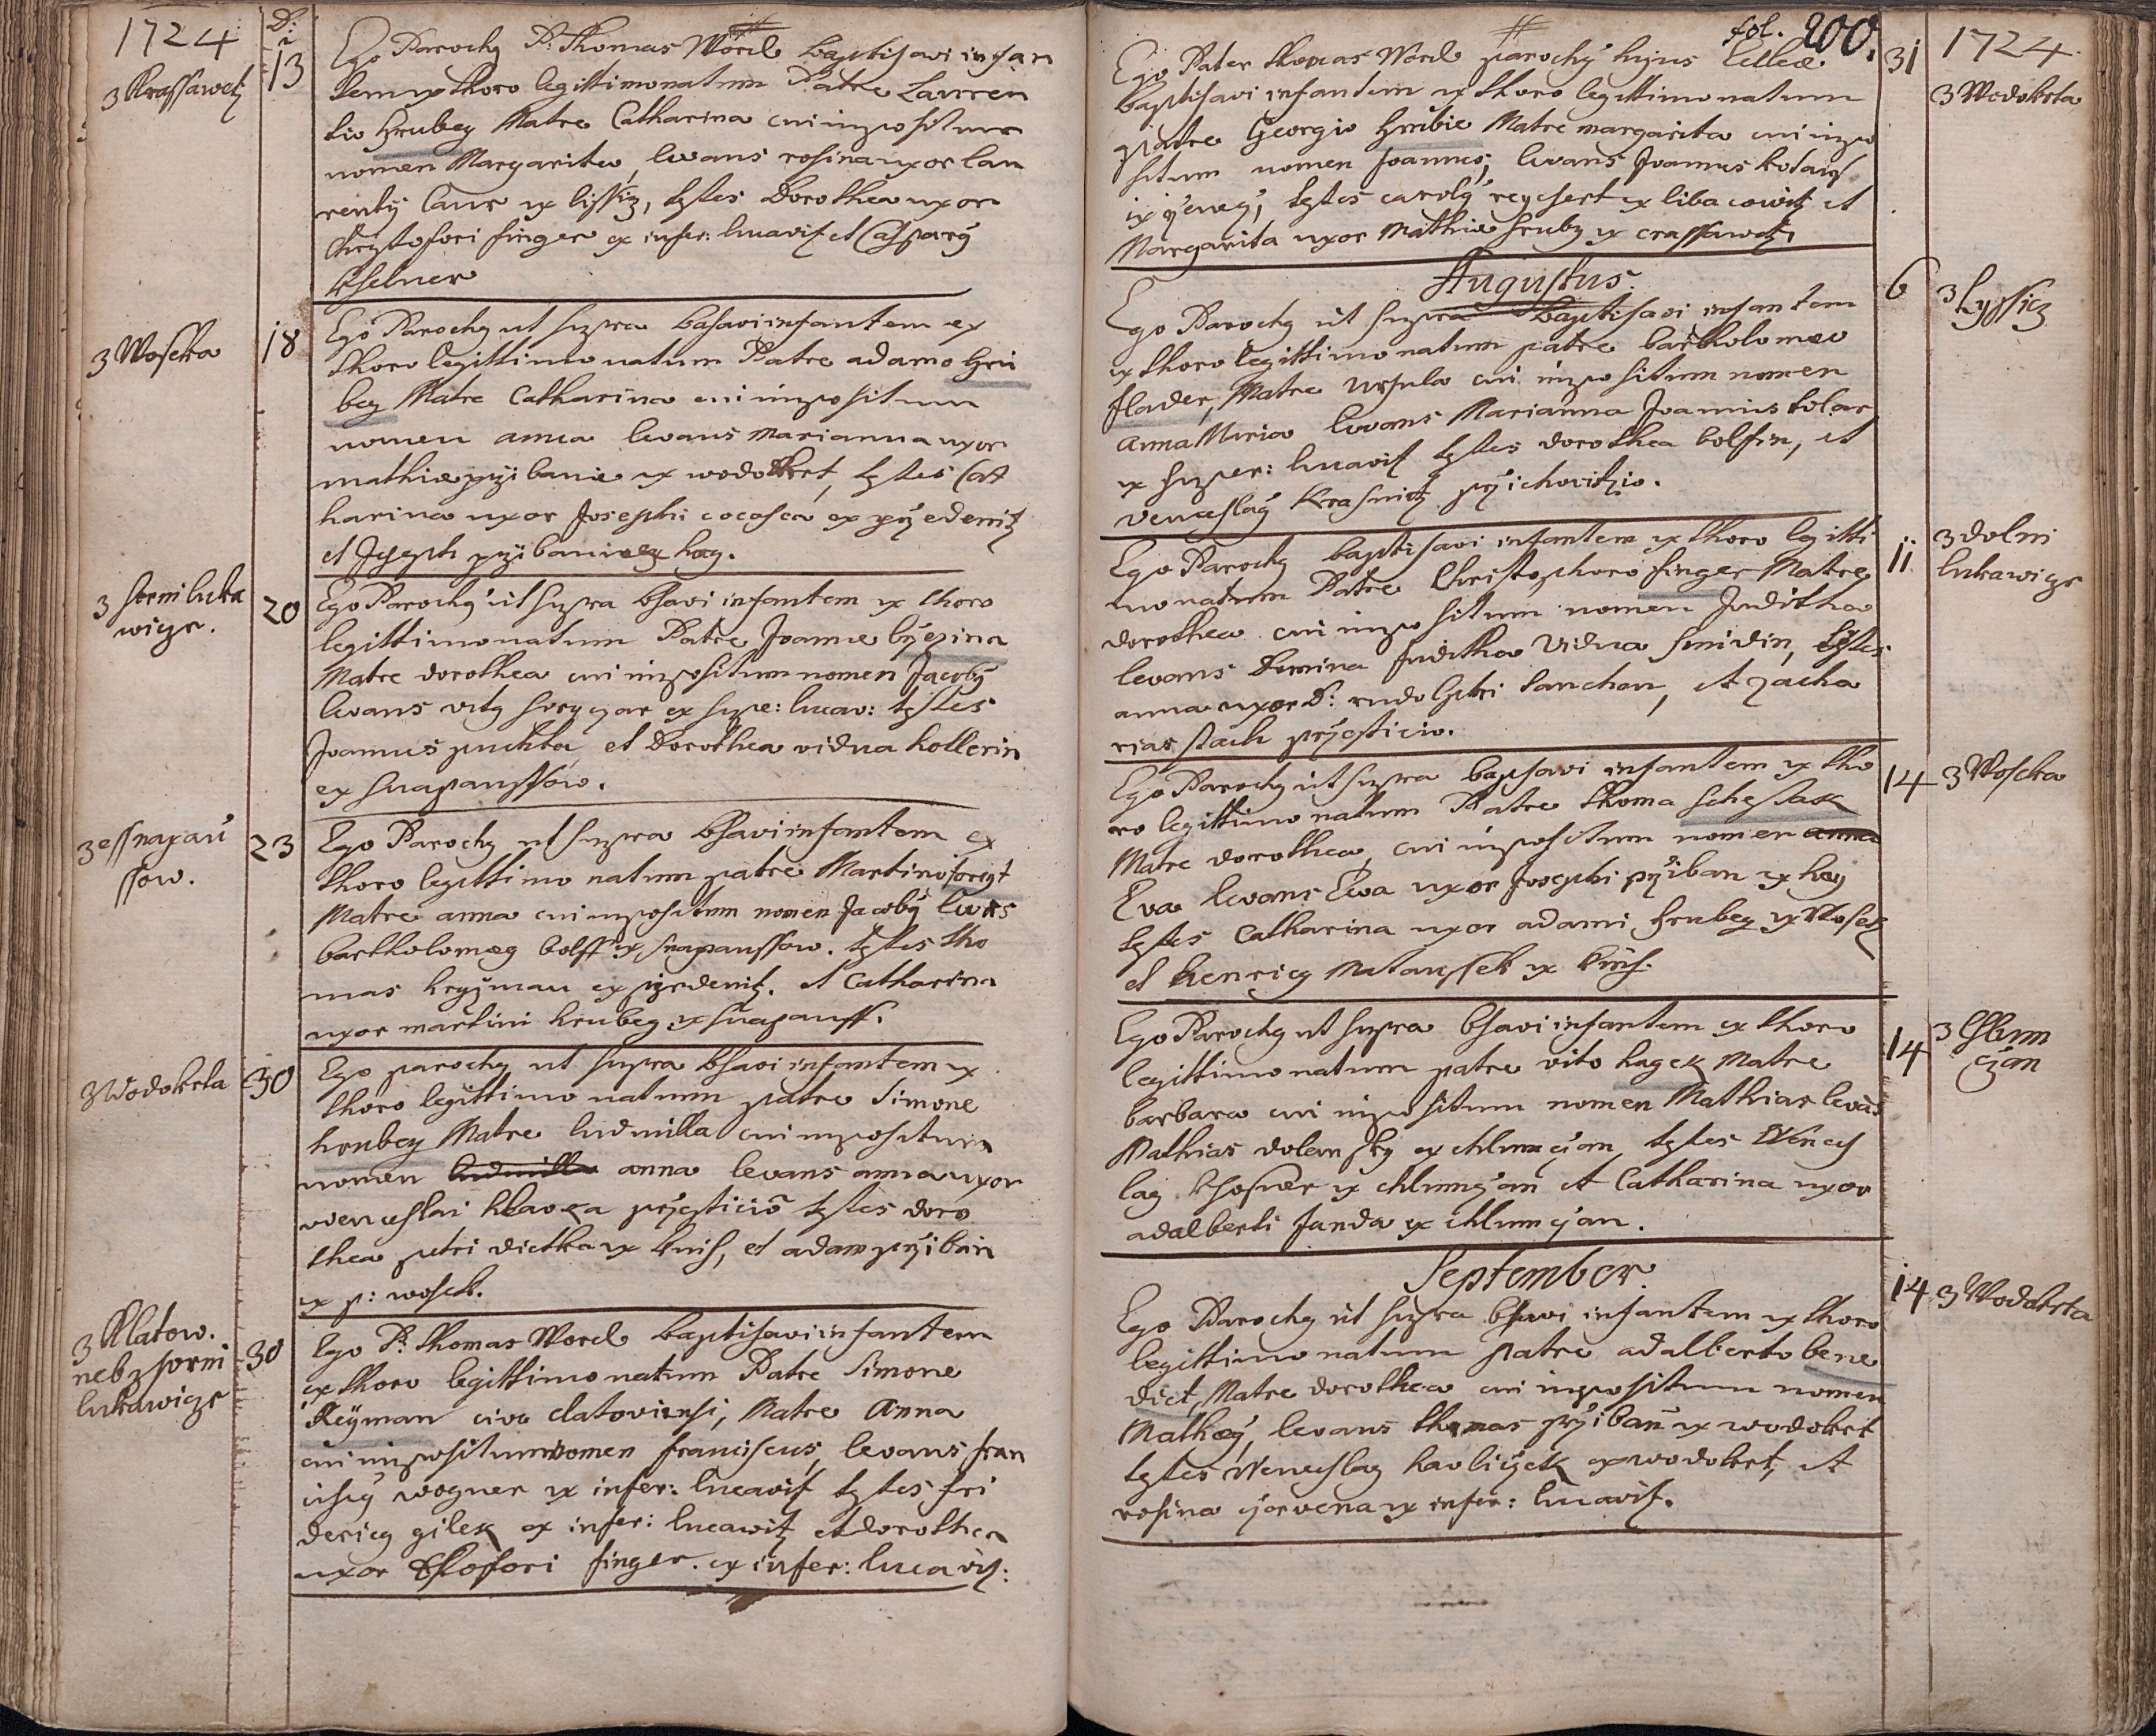 1724
D:
13
z Krassawetz
Ego Parochy P: Thomas Worel baptisavi infan
tem ex thoro legittimo natum Patre Lauren
tio Hrubey Matre Catharina cui impositum
nomen Margarita, levans rosina uxor lau
renty Caur ex lissiz, testes Dorothea uxor
finger ex infer: lucavit et Caspary
Kselner
z Woseka
18
Ego Parochy ut supra basavi infantem ex
thoro legittimo natum Patre adamo Hru
bey Matre Catharina cui impositum
nomen anna levans marianna uxor
mathiæ pzibanie ex wodokrt, testes Cat
harina uxor Josephi cocosca ex pzedenitz
et Joseph pziban ex hag.
z horni luka
wicze.
20
Ego Parochy ut supra bsavi infantem ex thoro
legittimo natum Patre Joanne bÿezina
Matre dorothea cui impositum nomen Jacoby
levans vity ex supe: lucav: testes
Joannes puchta et Dorothea vidua hollerin
ex snapaussow.
z essnapau
ssow.
23
Ego Parochy ut supra bsavi infantem ex
thoro legittimo natum patre Martino foreyt
Matre anna cui impositum nomen Jacoby
bartholomey bolff ex snapaussow. testes tho
mas hreyzman ex pizedenitz. et Catharina
uxor martini hrubey ex snapauss.
z Wodokrta
30
Ego parochy ut supra bsavi infantem ex
thoro legittimo natum patre Simone
hrubey Matre ludmilla cui impositum
nomen ludmilla anna levans anna uxor
venceslai hlavka testes doro
thea petri dietka ex knih, et adam pziban
ex p: wosek.
z Klatow.
neb z horni
lukawicze
30
Ego P: Thomas Worel baptisavi infantem
ex thoro legittimo natum Patre Simone
Reÿman cive clatoviensi, Matre Anna
cui impositum nomen franciscus, levans fran
ciscy wogner ex infer: lucavit testes fri
dericy gilek ex infer: lucawitz et dorothea
uxor finger. ex infer: lucavit:
fol. 200.
1724.
31
z Wodokrta
Ego Pater Thomas Worel parochy hujus
baptisavi infantem ex thoro legittimo natum
patre Georgio Hrubie Matre margarita cui impo
situm nomen Joannes, levans Joannes
testes caroly reychert ex libacowitz et
Margarita uxor Mathiæ hruby ex crassawetz.
Augustus.
6
z Lyssicz
Ego Parochy ut supra baptisavi infantem
ex thoro legittimo natum patre bartholomeo
flader, Matre Ursula cui impositum nomen
anna Maria levans Marianna Joannis kolar
ex super: lucavit testes dorothea bolfin, et
venceslay Krasnitz
11
z dolni
lukawicze
Ego Parochy baptisavi infantem ex thoro legitti
mo natum Patre Christophoro finger Matre
dorothea cui impositum nomen Juditha
levans Domina Juditha Vidua smidin, testes
anna uxor D: rudolphi Lanchon, et zacha
rias stach
14
z Woseka
Ego Parochy ut supra bapsavi infantem ex tho
ro legittimo natum Patre thoma schestak
Matre dorothea, cui impositum nomen anna
Eva levans Ewa uxor Josephi pziban ex hag
testes Catharina uxor adami hrubey ex Wosek
et henricy Mataussek ex knih.
14
z Chlum
czan
Ego Parochy ut supra bsavi infantem ex thoro
legittimo natum patre vito hagek Matre
barbara cui impositum nomen Mathias levans
Mathias dolansky ex chlumczan testes Wences
lay ex chlumczan et Catharina uxor
adalberti Janda ex chlumczan.
September.
14
z Wodokrta
Ego Parochy ut supra bsavi infantem ex thoro
legittimo natum Patre adalberto bene
dict, Matre dorothea cui impositum nomen
Mathey, levans thomas pziban ex wodokrt
testes Wenceslay havliczek ex wodokrt, et
rosina czervena ex infer: lucavit.